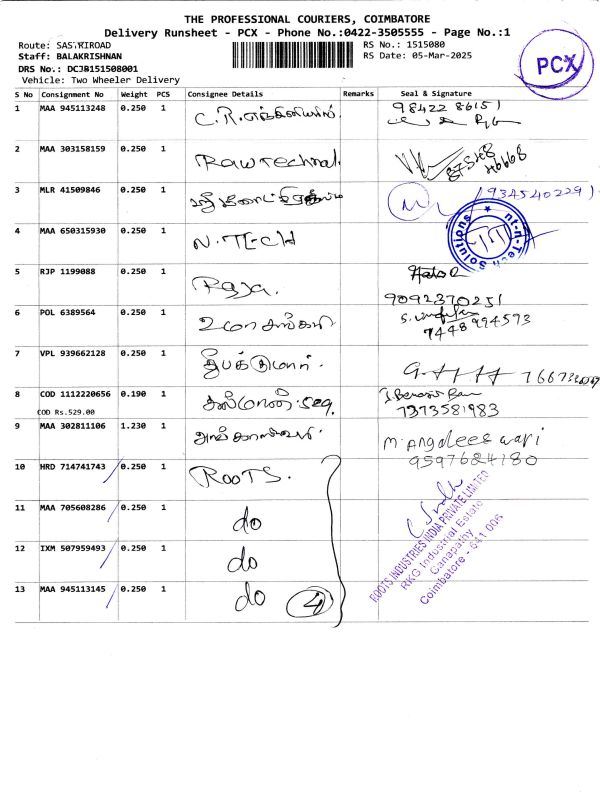 THE PROFESSIONAL COURIERS, COIMBATORE
Delivery Runsheet - PCX - Phone No.:0422-3505555 - Page No.:1
Route: SASTRIROAD
RS No.: 1515080
Staff: BALAKRISHNAN
RS Date: 05-Mar-2025
DRS No.: DCJB151508001
Vehicle: Two Wheeler Delivery
PCX
S No Consignment No Weight PCS Consignee Details Remarks Seal & Signature
1 MAA 945113248 0.250 1 C.R. 98422 86151
2 MAA 303158159 0.250 1 Raw Technal.
3 MLR 41509846 0.250 1 (934540229)
4 MAA 650315930 0.250 1 N.TECH nt-n-Tech Solutions
5 RJP 1199088 0.250 1 Raja. 9092370251
6 POL 6389564 0.250 1 உமா சங்கர் 7448994573
7 VPL 939662128 0.250 1 தீபக்குமார்.
8 COD 1112220656 0.190 1 7373581983
COD Rs.529.00
9 MAA 302811106 1.230 1 M. Angaleeswari
9597684180
10 HRD 714741743 0.250 1 ROOTS.
11 MAA 705608286 0.250 1 do
12 IXM 507959493 0.250 1 do
13 MAA 945113145 0.250 1 do 4
ROOTS INDUSTRIES INDIA PRIVATE LIMITED
RKG Industrial Estate
Ganapathy
Coimbatore - 641 006